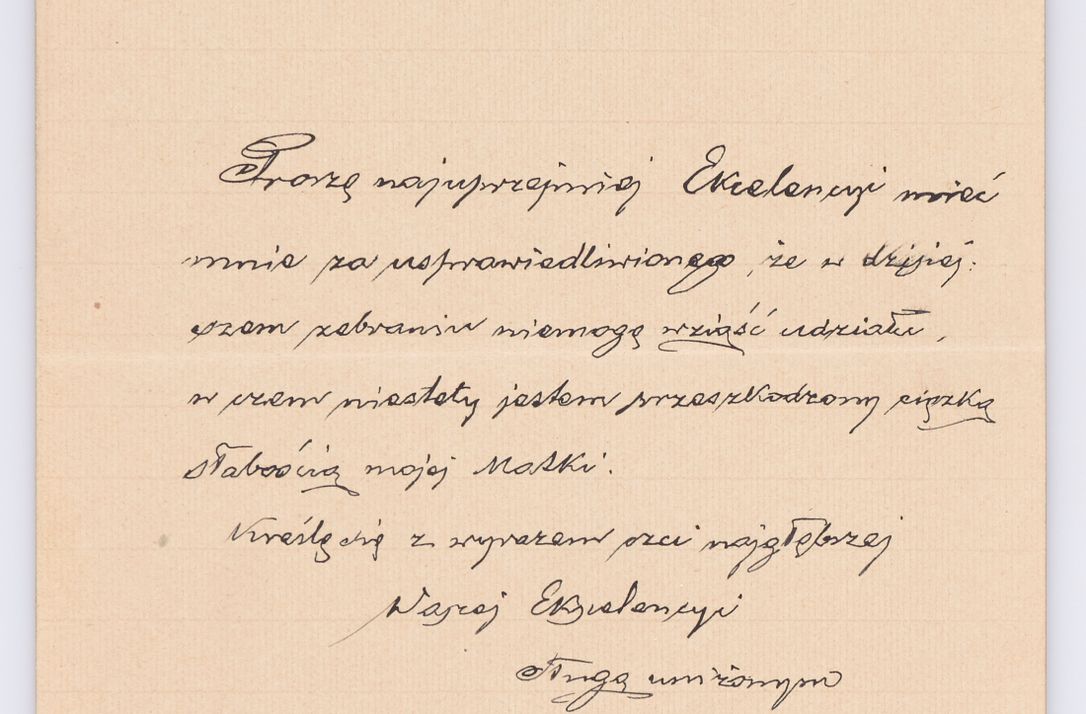 Proszę najuprzejmiej Ekcelencyi mieć
mnie za usprawiedliwionego, że w dzisiej:
szem zebraniu niemogę wziąść udziału,
w czem niestety jestem przeszkodzony ciężką
słabością mojej Matki.
Kreślę się z wyrazem czci najgłębszej
Waszej Ekscelencyi
sługą uniżonym